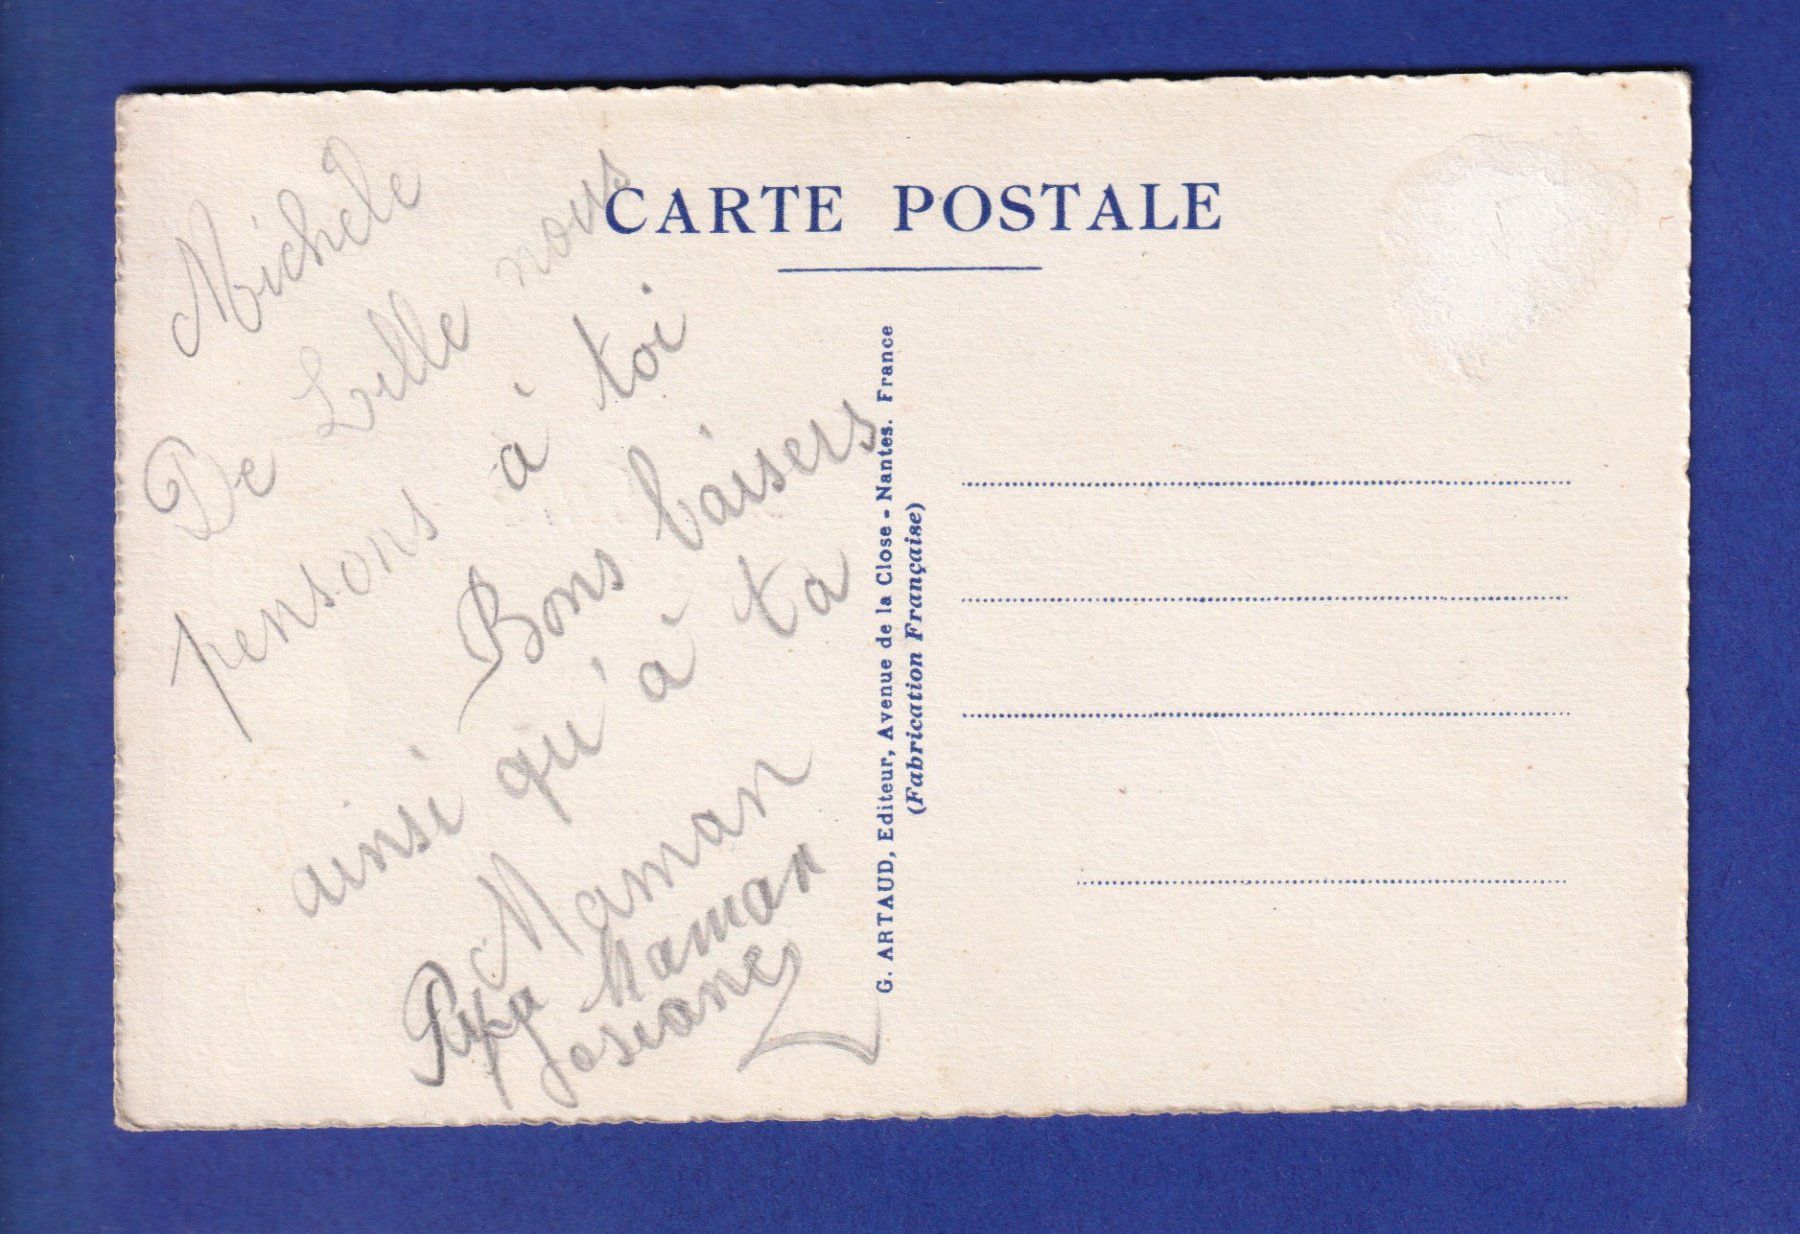 CARTE POSTALE
Michele
De Lille nous
pensons à toi
Bons baisers
ainsi qu'à ta
Maman
Papa Maman
Josiane
G. ARTAUD, Editeur, Avenue de la Close - Nantes. France
(Fabrication Française)